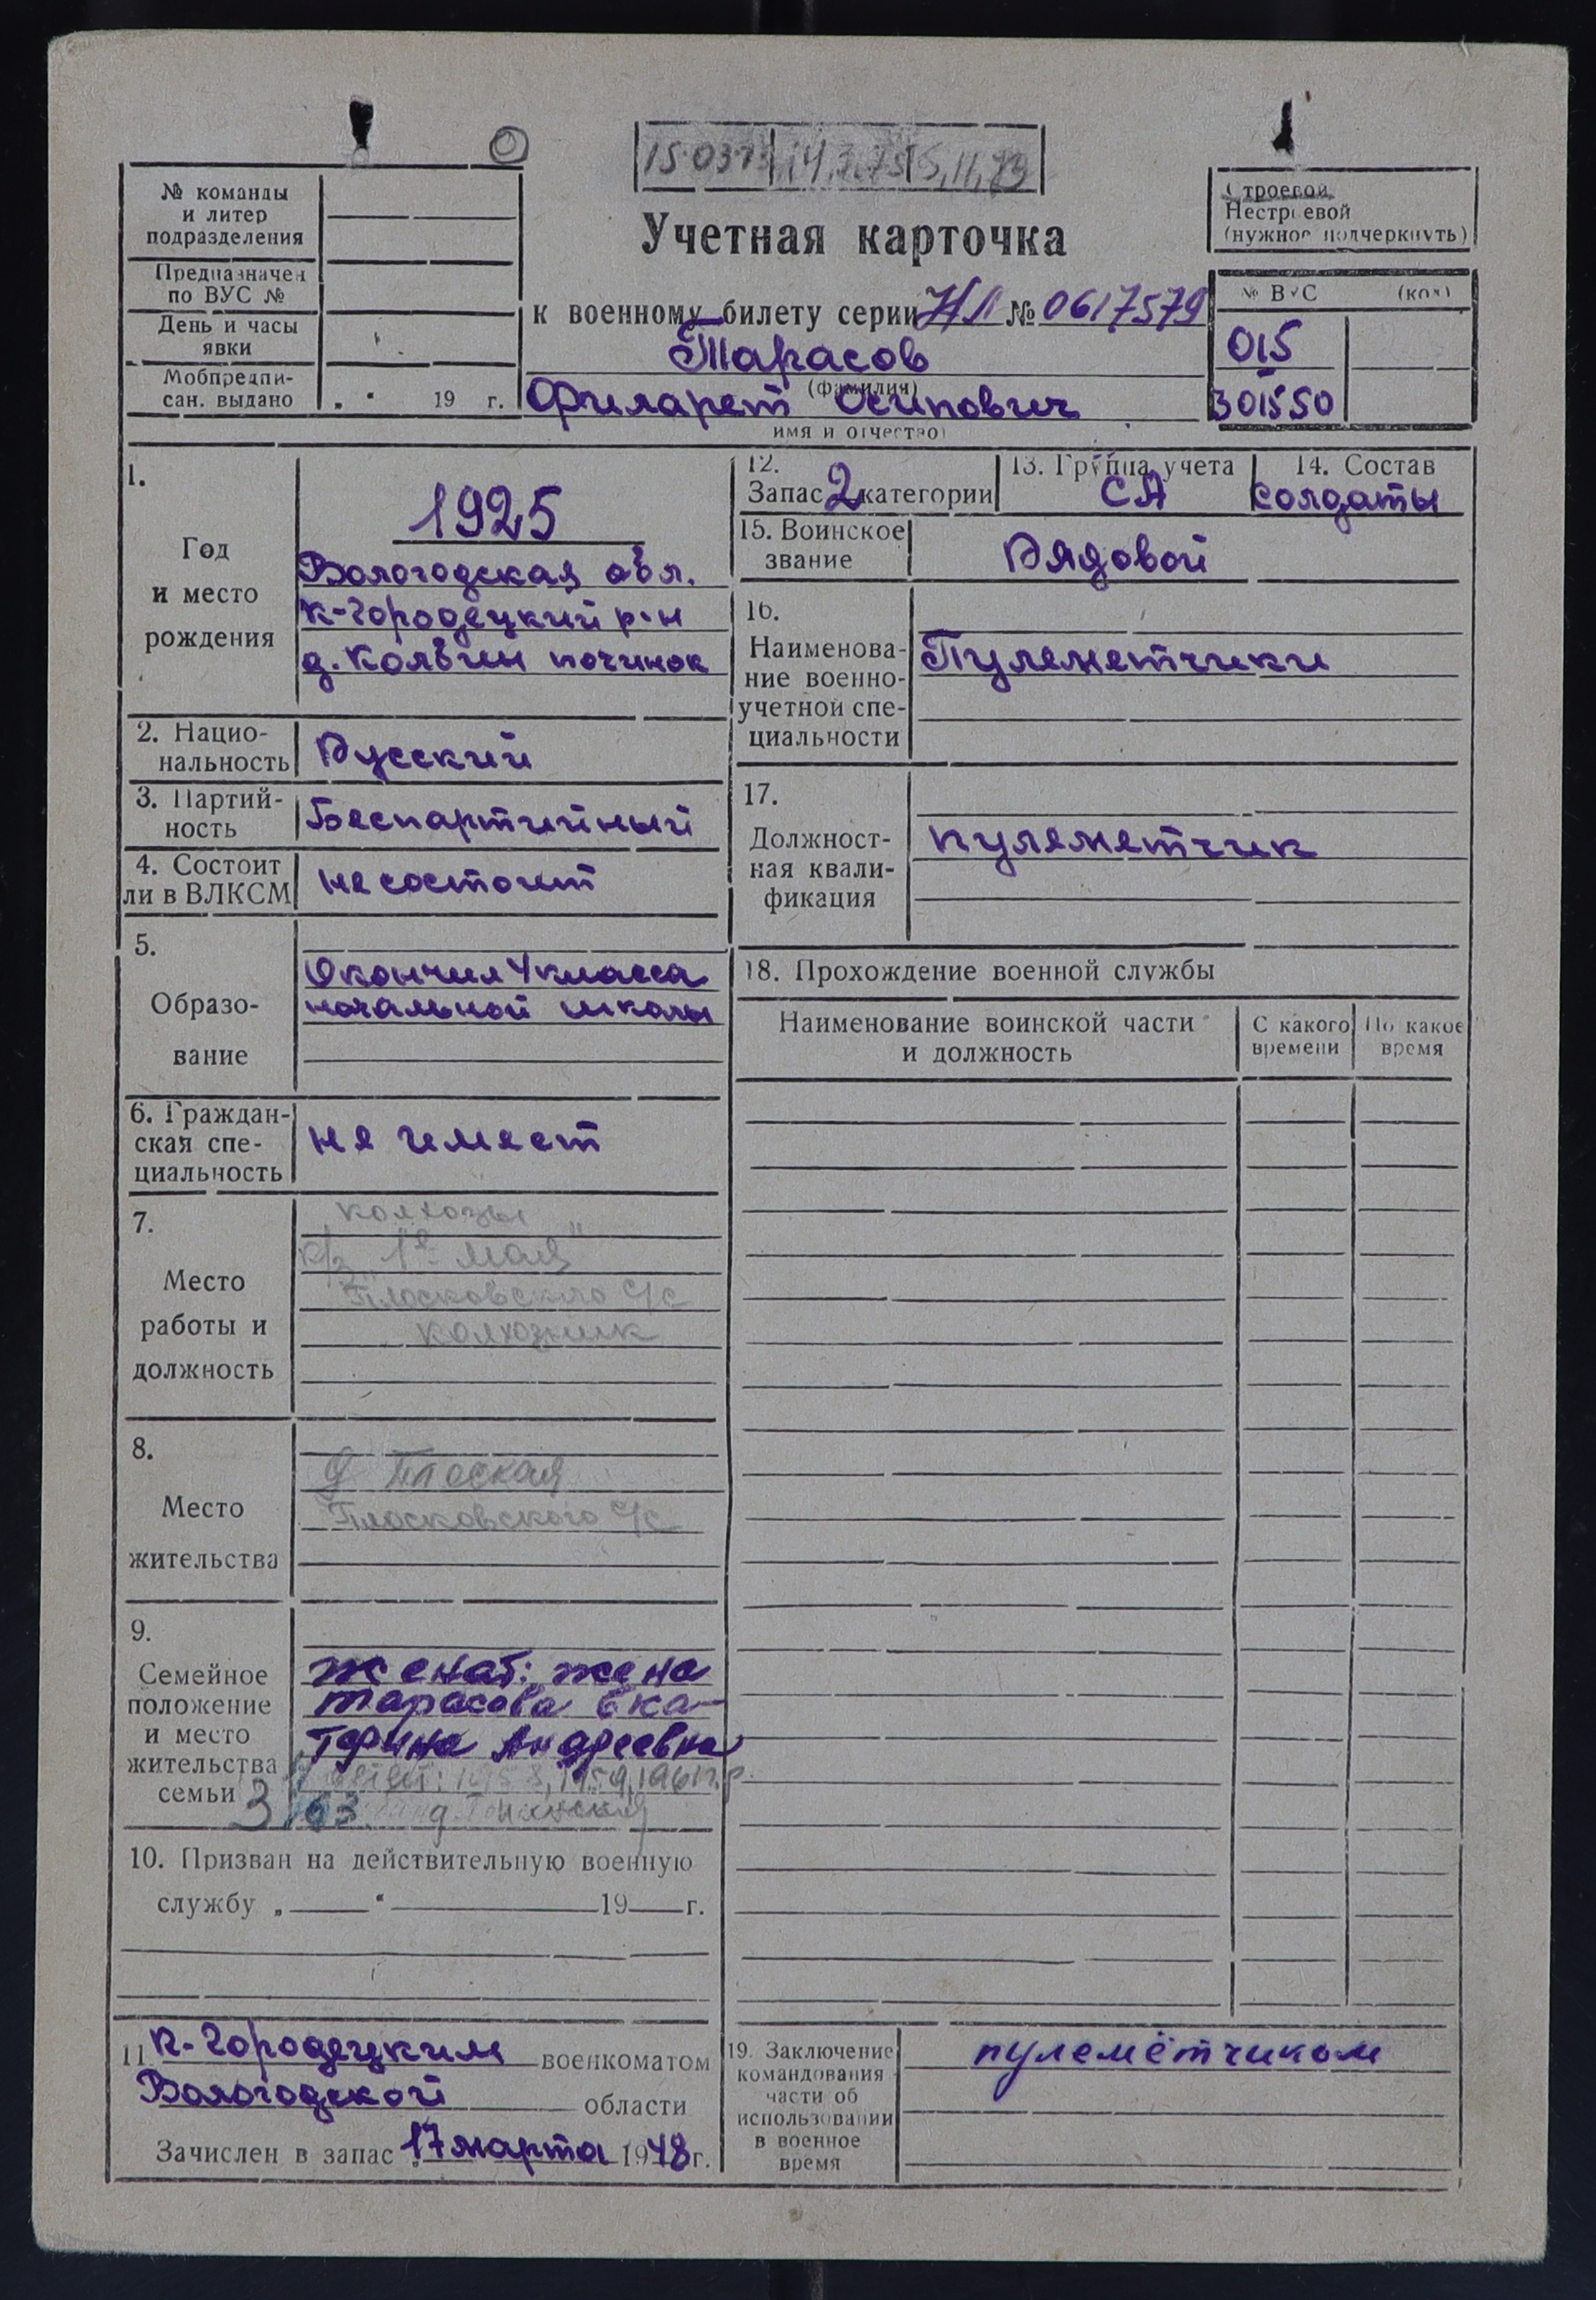 № команды
и литер
подразделения
Предназначен
по ВУС №
День и часы
явки
Мобпредпи-
сан. выдано „ “ 19 г.
Учетная карточка
к военному билету серии НЛ № 0617579
Тарасов
(фамилия)
Филарет Осипович
имя и отчество)
Строевой
Нестроевой
(нужное подчеркнуть)
№ ВУС (код)
015
301550
1.
Год
и место
рождения
1925
Вологодская обл.
К-Городецкий р-н
д. Колвин починок
2. Нацио-
нальность
Русский
3. Партий-
ность
Беспартийный
4. Состоит
ли в ВЛКСМ
не состоит
5.
Образо-
вание
Окончил 4 класса
начальной школы
6. Граждан-
ская спе-
циальность
не имеет
7.
Место
работы и
должность
колхозы
к/з „1е мая"
Плосковского с/с
колхозник
8.
Место
жительства
д Плоская
Плосковского с/с
9.
Семейное
положение
и место
жительства
семьи
женат: жена
Тарасова Ека-
терина Андреевна
1958, 1959, 1961 г.р.
10. Призван на действительную военную
службу „ “ 19 г.
11 К-Городецким военкоматом
Вологодской области
Зачислен в запас 17 марта 1948 г.
12.
Запас 2 категории
13. Группа учета
СА
14. Состав
солдаты
15. Воинское
звание
Рядовой
16.
Наименова-
ние военно-
учетной спе-
циальности
Пулеметчики
17.
Должност-
ная квали-
фикация
пулеметчик
18. Прохождение военной службы
Наименование воинской части
и должность
С какого
времени
По какое
время
19. Заключение
командования
части об
использовании
в военное
время
пулемётчиком